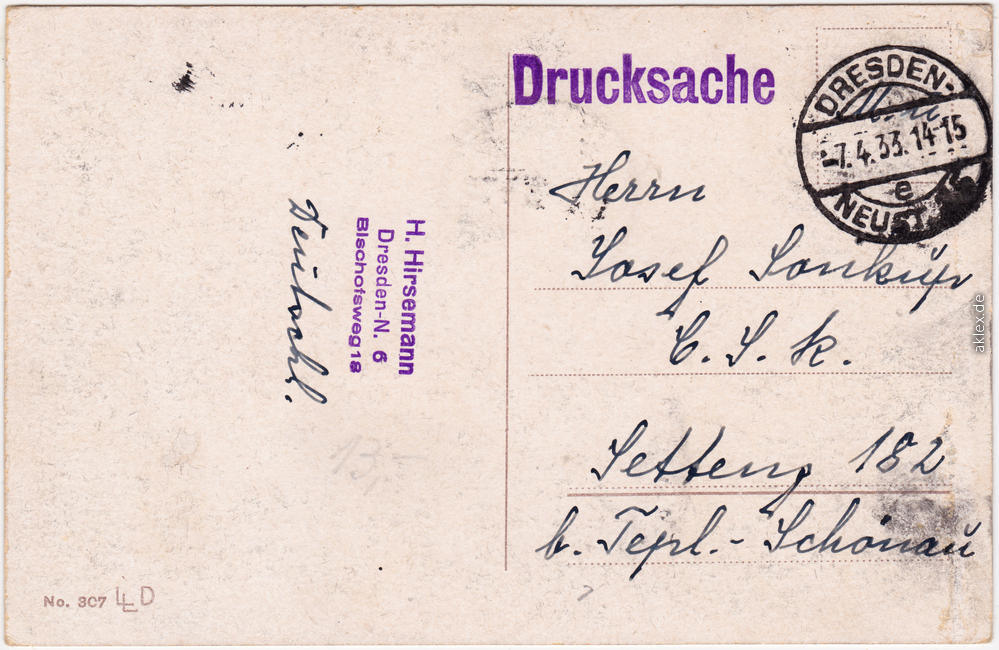 Drucksache
DRESDEN-
-7.4.33.14-15
e
NEUST.
Herrn
Josef Sonkup
C. S. R.
Settenz 182
b. Tepl.-Schönau
H. Hirsemann
Dresden-N. 6
Bischofsweg 18
Deutschl.
13,-
No. 307 LLD
aklex.de